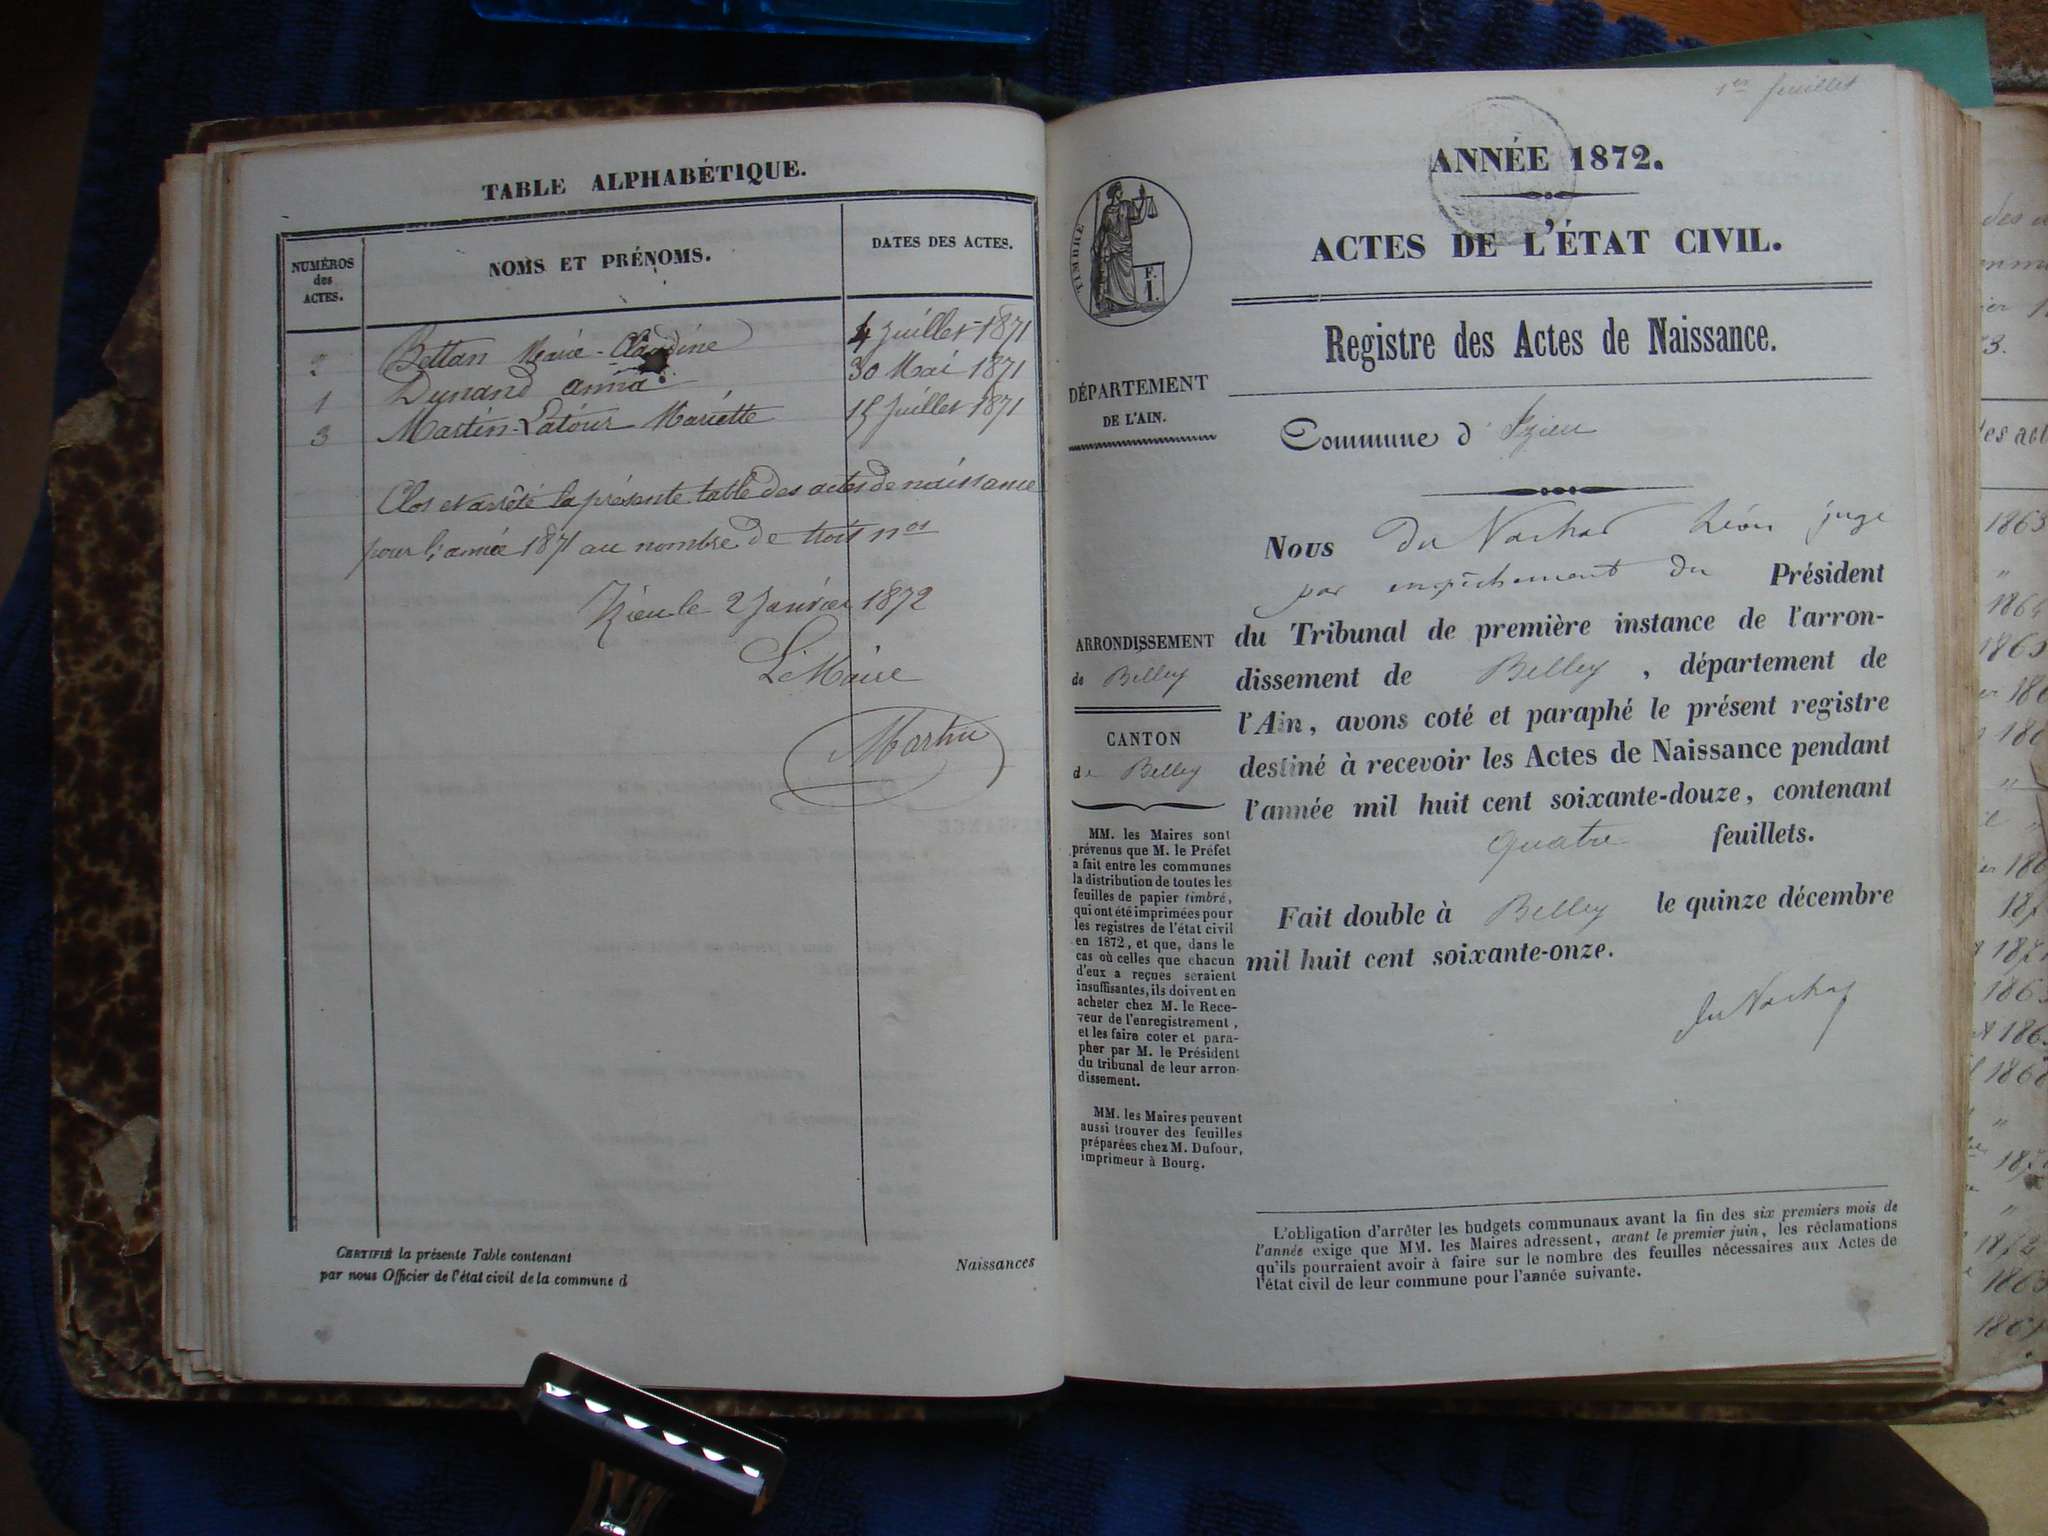 TABLE ALPHABÉTIQUE.
NUMÉROS
des
ACTES.
NOMS ET PRÉNOMS.
DATES DES ACTES.
2 Bettan Marie-Claudine 4 Juillet 1871
1 Dunand anna 30 Mai 1871
3 Martin-Latour Mariette 15 Juillet 1871
Clos et arrêté la présente table des actes de naissance
pour l'année 1871 au nombre de trois nos
Izieu le 2 Janvier 1872
Le Maire
Martin
CERTIFIÉ la présente Table contenant
par nous Officier de l'état civil de la commune d
Naissances
1er feuillet
ANNÉE 1872.
ACTES DE L'ÉTAT CIVIL.
Registre des Actes de Naissance.
TIMBRE
F.
I.
DÉPARTEMENT
DE L'AIN.
Commune d'Izieu
Nous du Nachat Léon juge
par empêchement du Président
du Tribunal de première instance de l'arron-
dissement de Belley, département de
l'Ain, avons coté et paraphé le présent registre
destiné à recevoir les Actes de Naissance pendant
l'année mil huit cent soixante-douze, contenant
quatre feuillets.
Fait double à Belley le quinze décembre
mil huit cent soixante-onze.
du Nachat
ARRONDISSEMENT
de Belley
CANTON
de Belley
MM. les Maires sont
prévenus que M. le Préfet
a fait entre les communes
la distribution de toutes les
feuilles de papier timbré,
qui ont été imprimées pour
les registres de l'état civil
en 1872, et que, dans le
cas où celles que chacun
d'eux a reçues seraient
insuffisantes, ils doivent en
acheter chez M. le Rece-
veur de l'enregistrement,
et les faire coter et para-
pher par M. le Président
du tribunal de leur arron-
dissement.
MM. les Maires peuvent
aussi trouver des feuilles
préparées chez M. Dufour,
imprimeur à Bourg.
L'obligation d'arrêter les budgets communaux avant la fin des six premiers mois de
l'année exige que MM. les Maires adressent, avant le premier juin, les réclamations
qu'ils pourraient avoir à faire sur le nombre des feuilles nécessaires aux Actes de
l'état civil de leur commune pour l'année suivante.